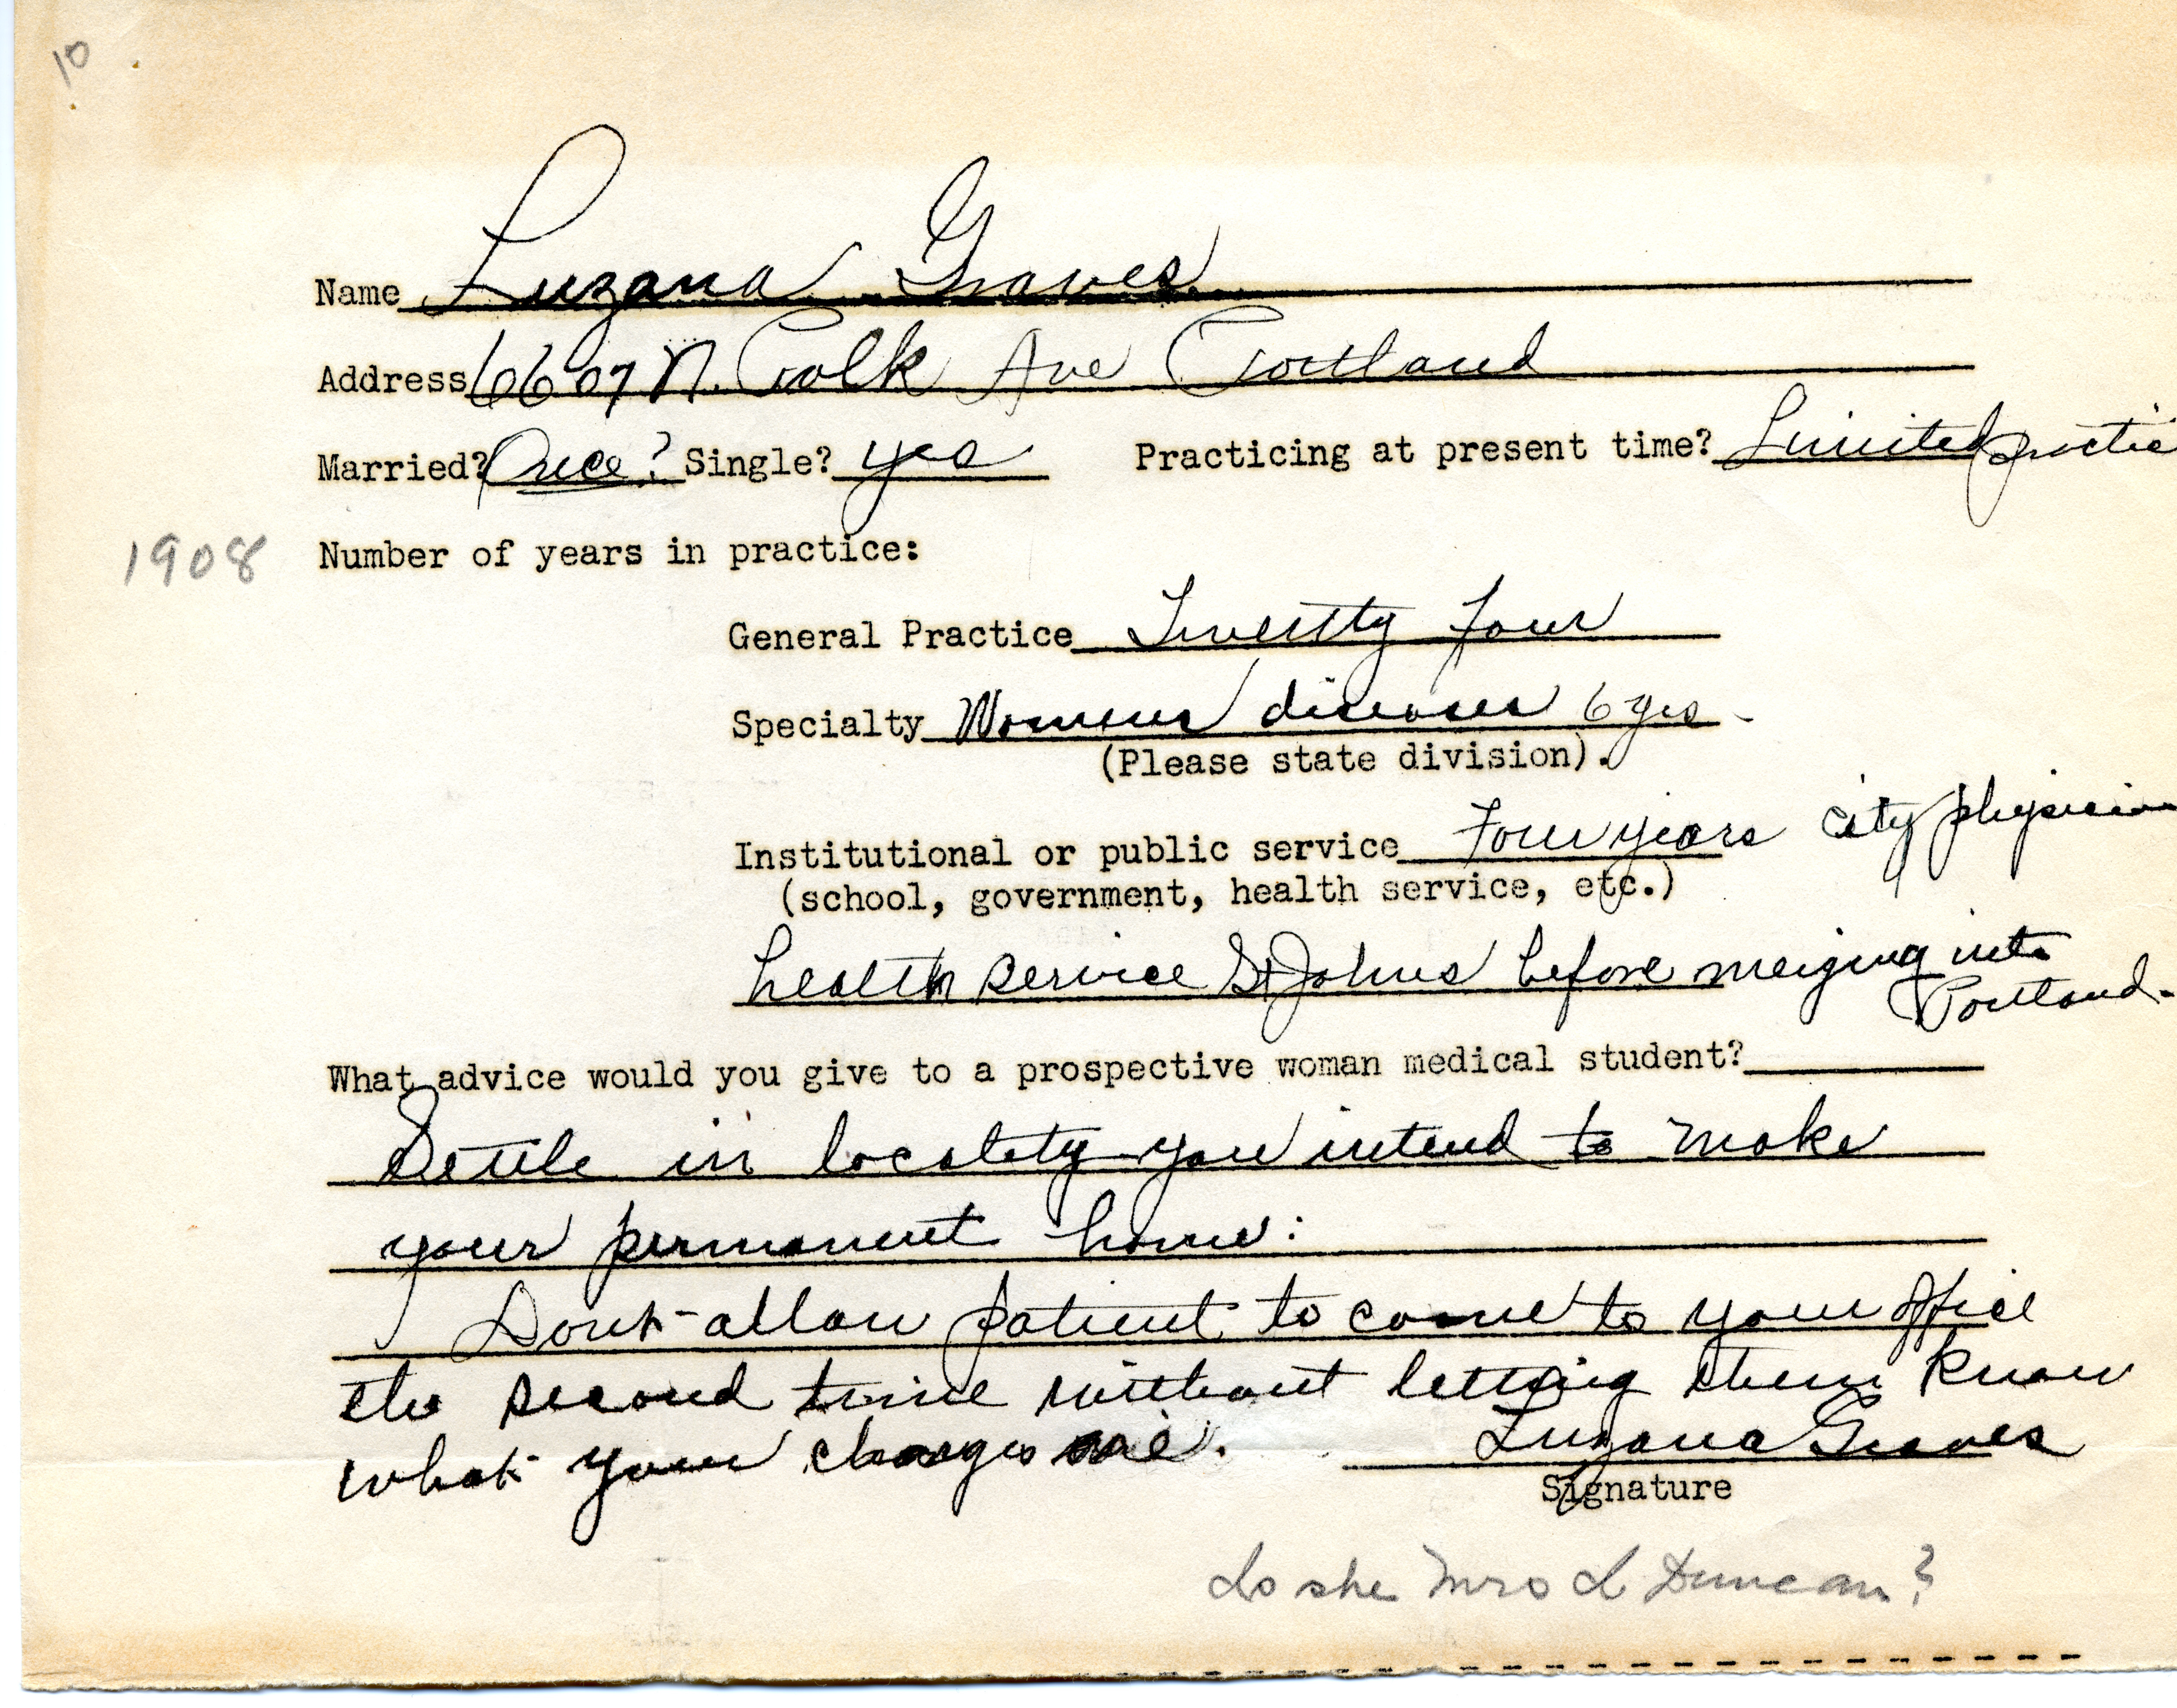 10
Name Luzana Graves
Address 6607 N. Polk Ave Portland
Married? Once? Single? yes Practicing at present time? Limited practic
1908 Number of years in practice:
General Practice Twentty Four
Specialty Womens diseases 6 yrs -
(Please state division).
Institutional or public service Four years city physician
(school, government, health service, etc.)
health service St Johns before merging into
Portland.
What advice would you give to a prospective woman medical student?
Settle in locality you intend to make
your permanent home:
Dont allow patient to come to your office
the second time without letting them know
what your charges are.
Luzana Graves
Signature
Is she Mrs L Duncan?